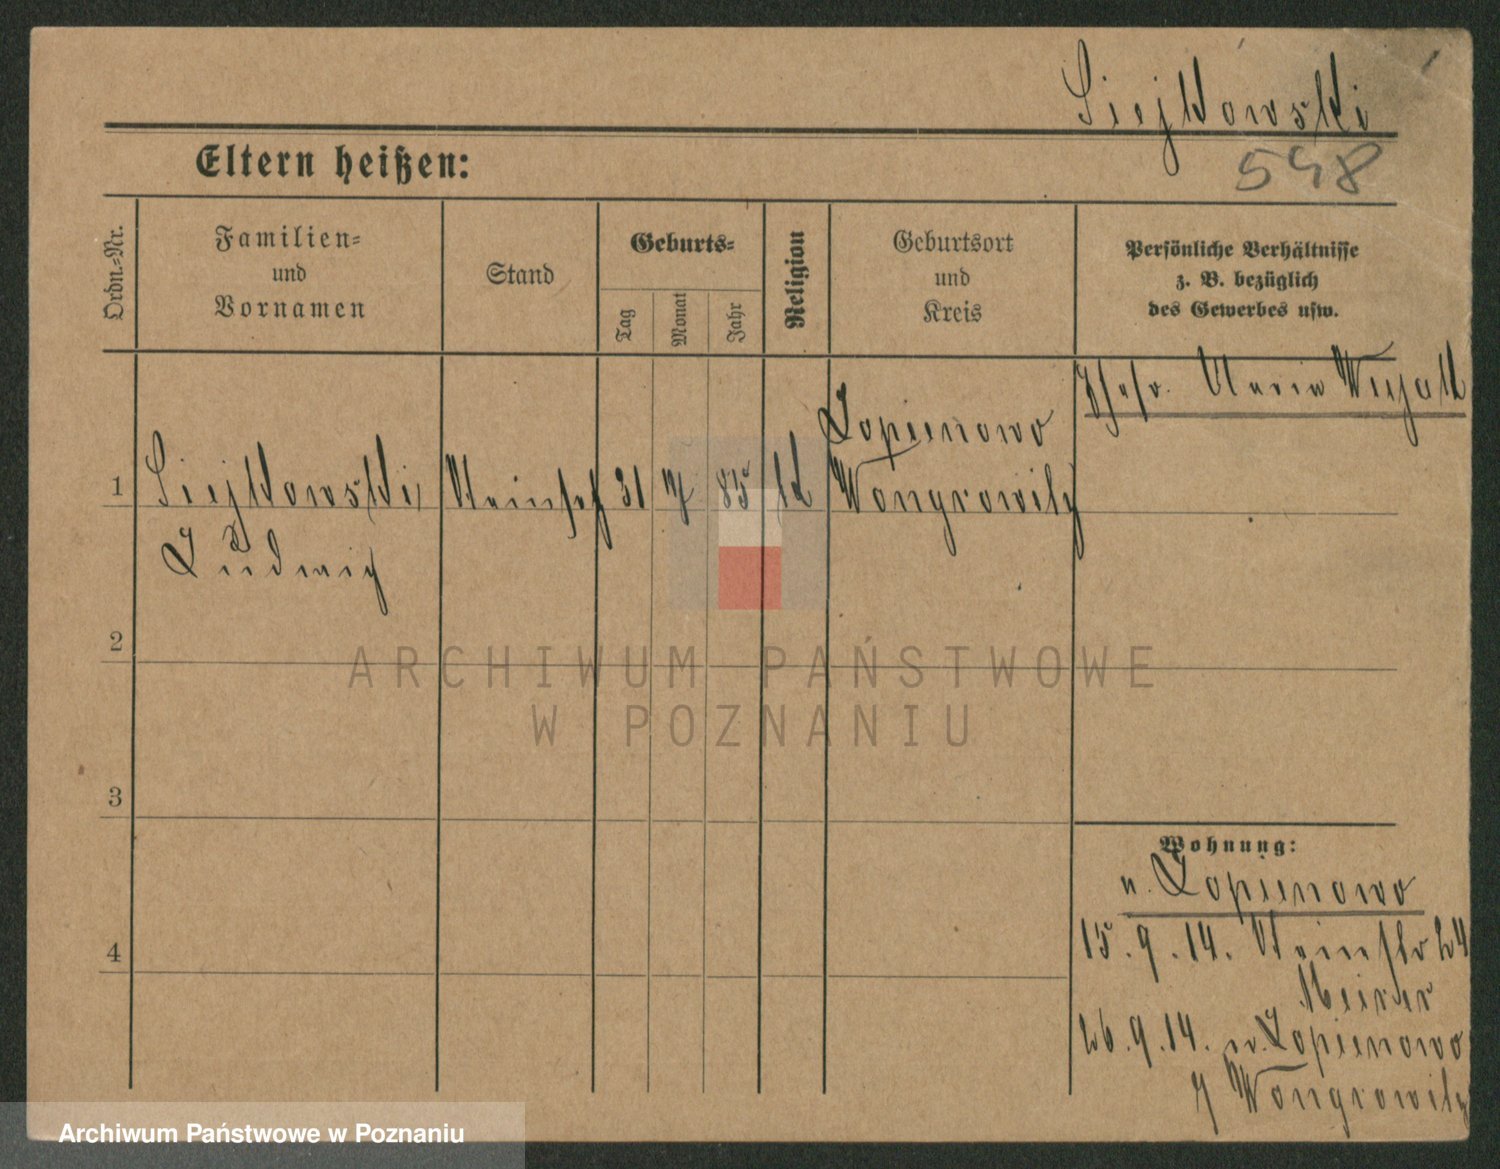 Siejkowski
548
Eltern heißen:
Ordn.-Nr.
Familien-
und
Vornamen
Stand
Geburts-
Tag
Monat
Jahr
Religion
Geburtsort
und
Kreis
Persönliche Verhältnisse
z. B. bezüglich
des Gewerbes usw.
Maria
1
Siejkowski,
Ludwig
31
7
85
k
Lopienowo
Wongrowitz
2
3
4
Wohnung:
n. Lopienowo
15.9.14. 24
Meirer
26.9.14. n. Lopienowo
Wongrowitz
ARCHIWUM PAŃSTWOWE
W POZNANIU
Archiwum Państwowe w Poznaniu